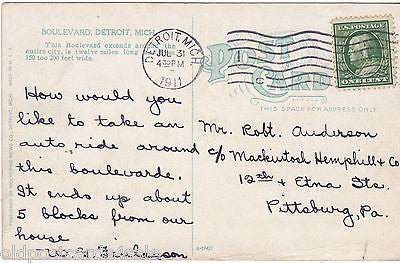 BOULEVARD, DETROIT, MICH.
This Boulevard extends around the
entire city, is twelve miles long
150 too 200 feet wide.
DETROIT, MICH.
JUL 31
4 PM
1911
POST CARD
THIS SPACE FOR ADDRESS ONLY
ONE CENT
PUBLISHED BY WOLVERINE NEWS CO., DETROIT, MICH.
MADE IN U. S. A.
How would you
like to take an
auto ride around
this boulevarde.
It ends up about
5 blocks from our
house
Mr. Robt. Anderson
c/o Mackintosh Hemphill & Co
12th & Etna Sts.
Pittsburg, Pa.
oldpostcards.com